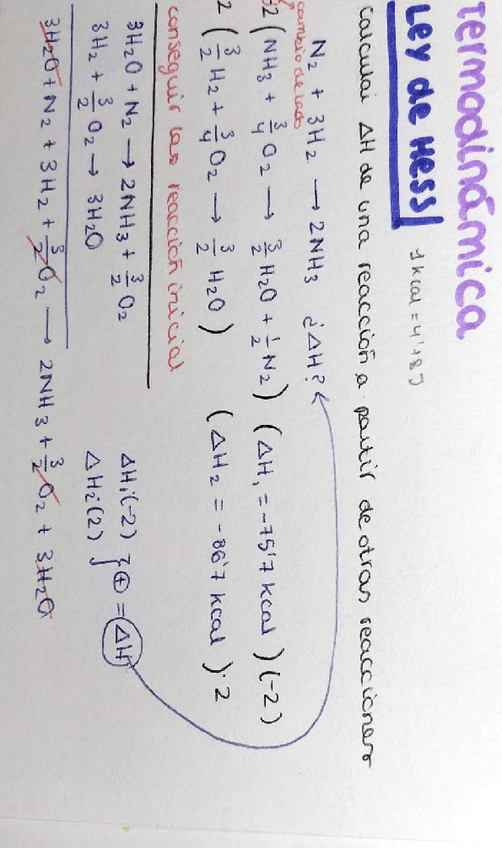 Termodinámica
Ley de Hess
1 kcal = 4'18 J
calcular ΔH de una reacción a partir de otras reacciones
N₂ + 3H₂ → 2NH₃ ¿ΔH?
cambio de lado
2 (NH₃ + 3/4 O₂ → 3/2 H₂O + 1/2 N₂) (ΔH₁ = -75'7 kcal) (-2)
2 (3/2 H₂ + 3/4 O₂ → 3/2 H₂O) (ΔH₂ = -86'7 kcal)·2
conseguir las reacción inicial
3H₂O + N₂ → 2NH₃ + 3/2 O₂ ΔH₁·(-2)
3H₂ + 3/2 O₂ → 3H₂O ΔH₂·(2) } ⊕ = ΔH
3H₂O + N₂ + 3H₂ + 3/2 O₂ → 2NH₃ + 3/2 O₂ + 3H₂O